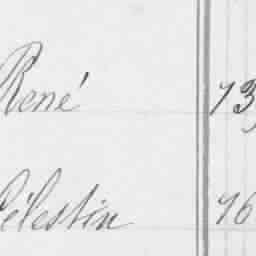 René 73
Célestin 76